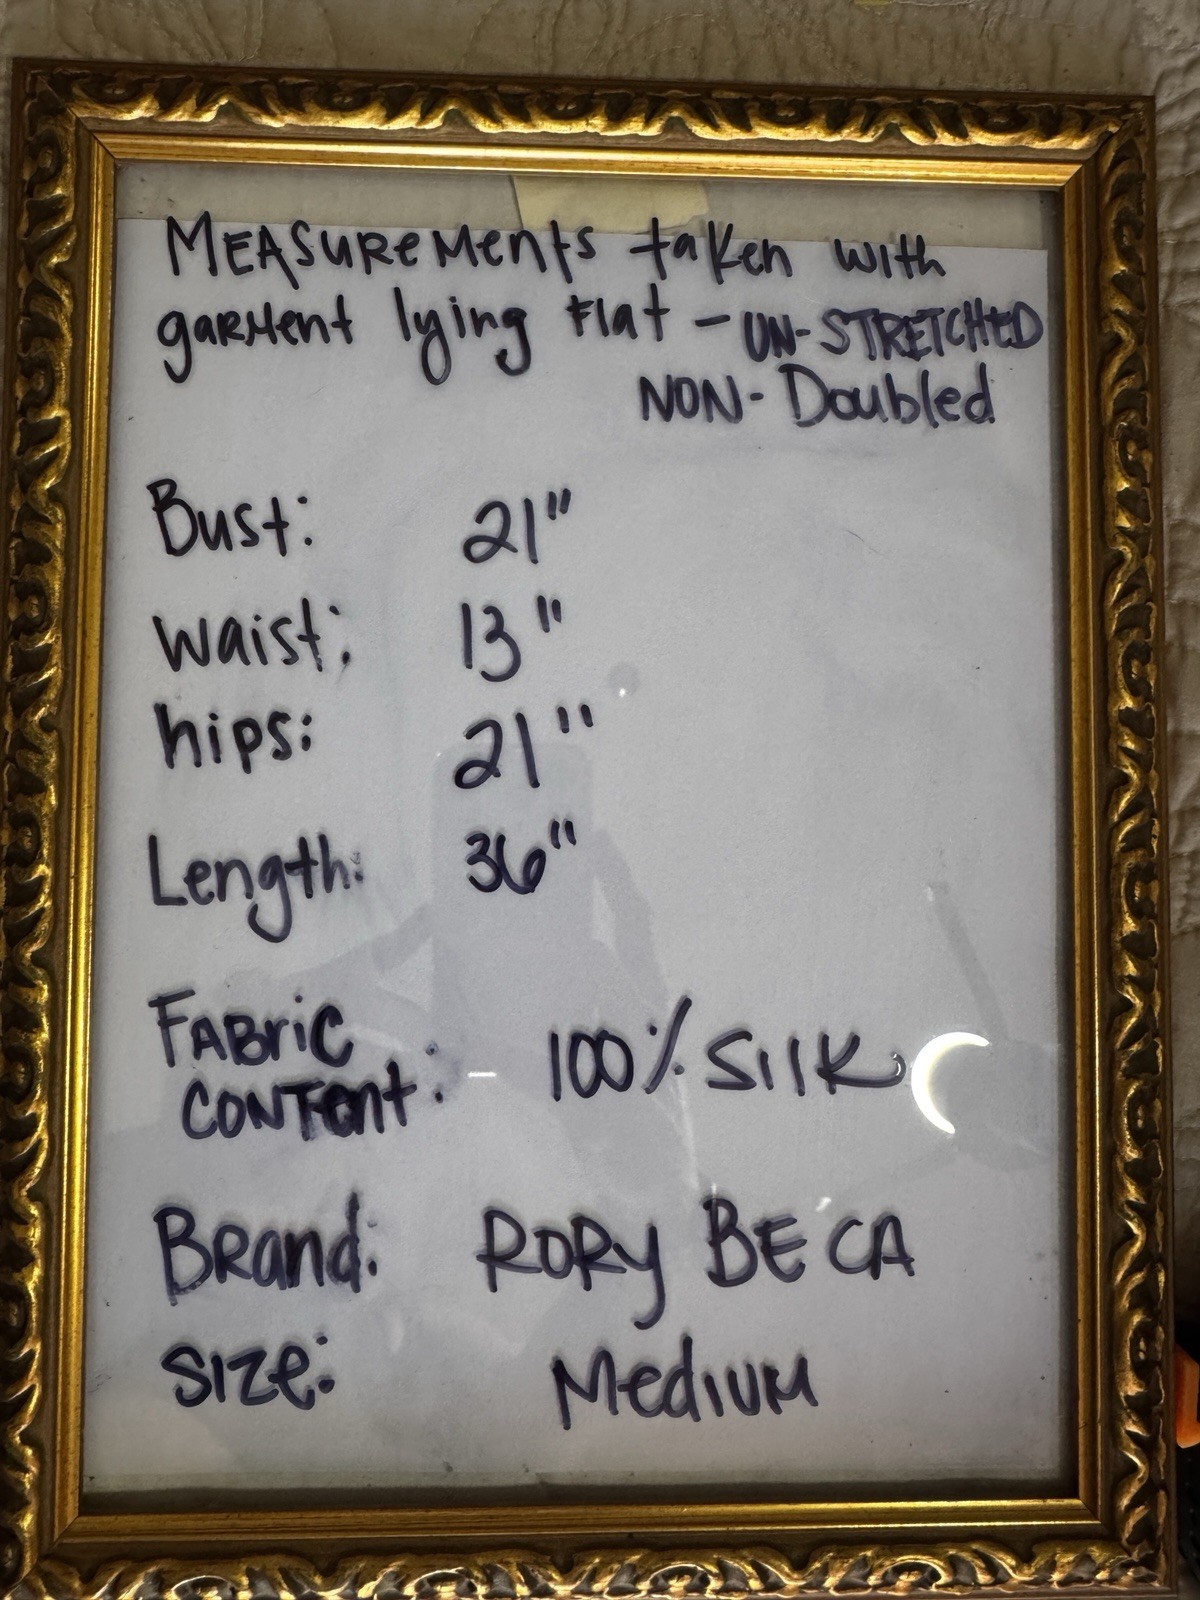 MEASUREMENTS taken with
garment lying Flat - UN-STRETCHED
NON-Doubled
Bust: 21"
waist: 13"
hips: 21"
Length: 36"
FABRIC
CONTENT: 100% Silk
Brand: RORY BECA
SIZE: Medium